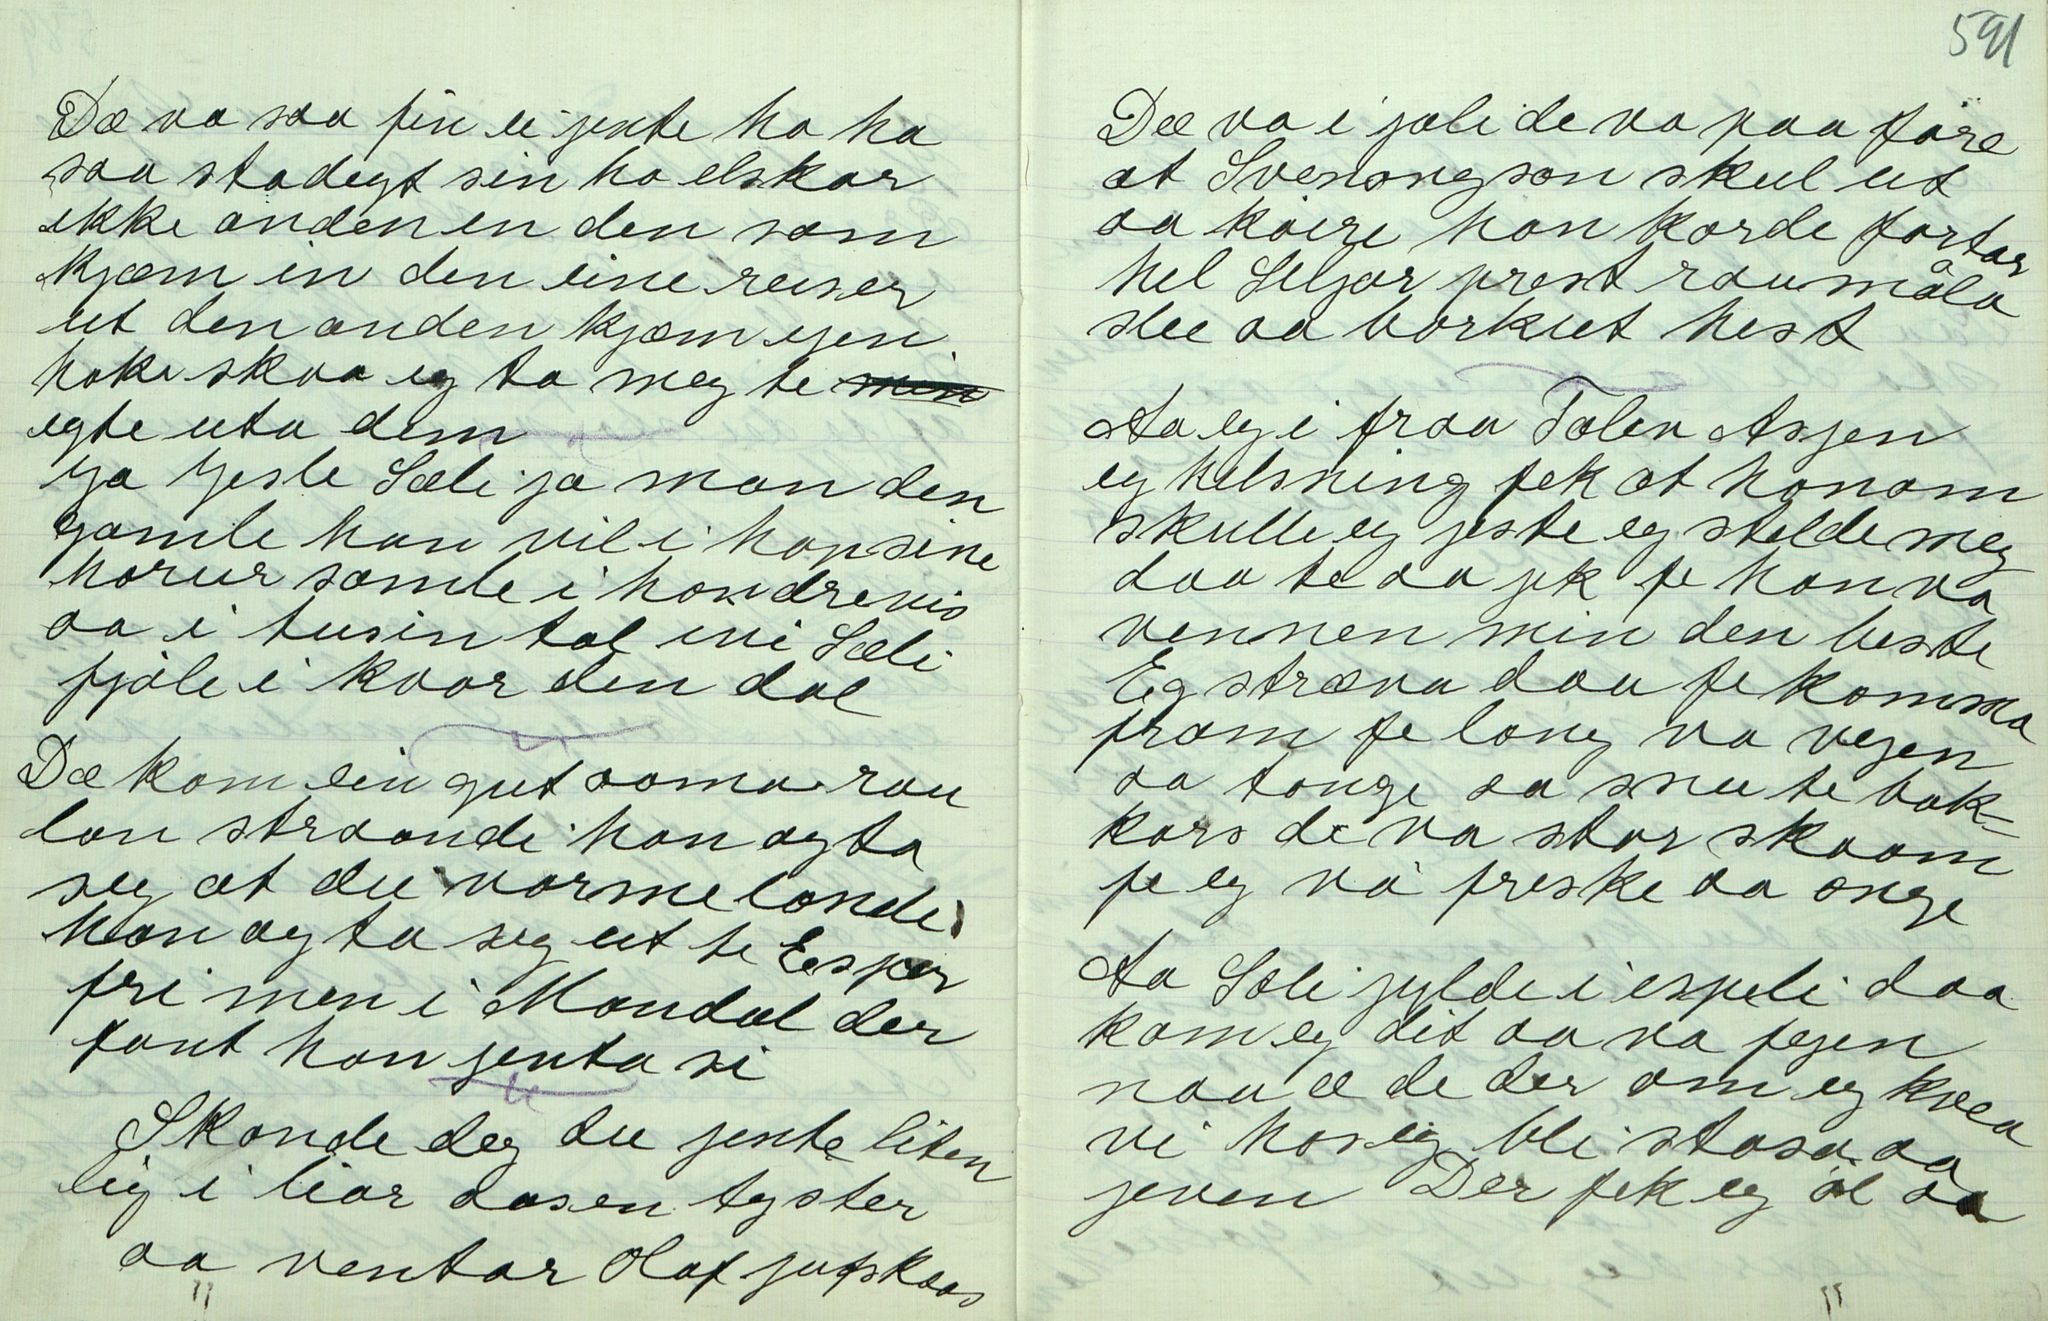 Dæ va saa fin ei jente ho ha
saa stadegt sin ho elskar
ikke anden en den som
kjæm in den eine reiser
ut den anden kjæm igen
hoke skaa eg ta meg te min
egte uta dem
Ja Jesle Sæli ja man den
gamle han vil i hop sine
horur samle i hondrevis
aa i tusintal ivi Sæli
fjøle i kvar den dal
Dæ kom ein gut aama rau
lan straande han agta
seg at dei varme lande
han agta seg ut te Esper
fri men i Mandal der
fant han jenta si
Skonde deg du jente liten
lig i liar aasen tyster
aa ventar Olaf jufskaas
591
Dæ va i jæli de va paa føre
at Svenongson skul ut
aa køire han kørde fortar
hel Seljor prest rau måla
slee aa borkut hest
Aa eg i fraa Talev Asjen
eg helsning fek at honom
skulle eg jeste eg stelde meg
daa te aa jek fe han va
vennen min den beste
Eg stræva daa fe komma
fram fe lang va vegen
aa tonge aa snu te bak-
kars de va stor skaam
fe eg va freske aa onge
Aa Sæli jylde i espeli daa
kam eg dit aa va fegen
naa æ de der om eg kvea
vi hos eg bli stasa aa
jeven Der fek eg øl aa